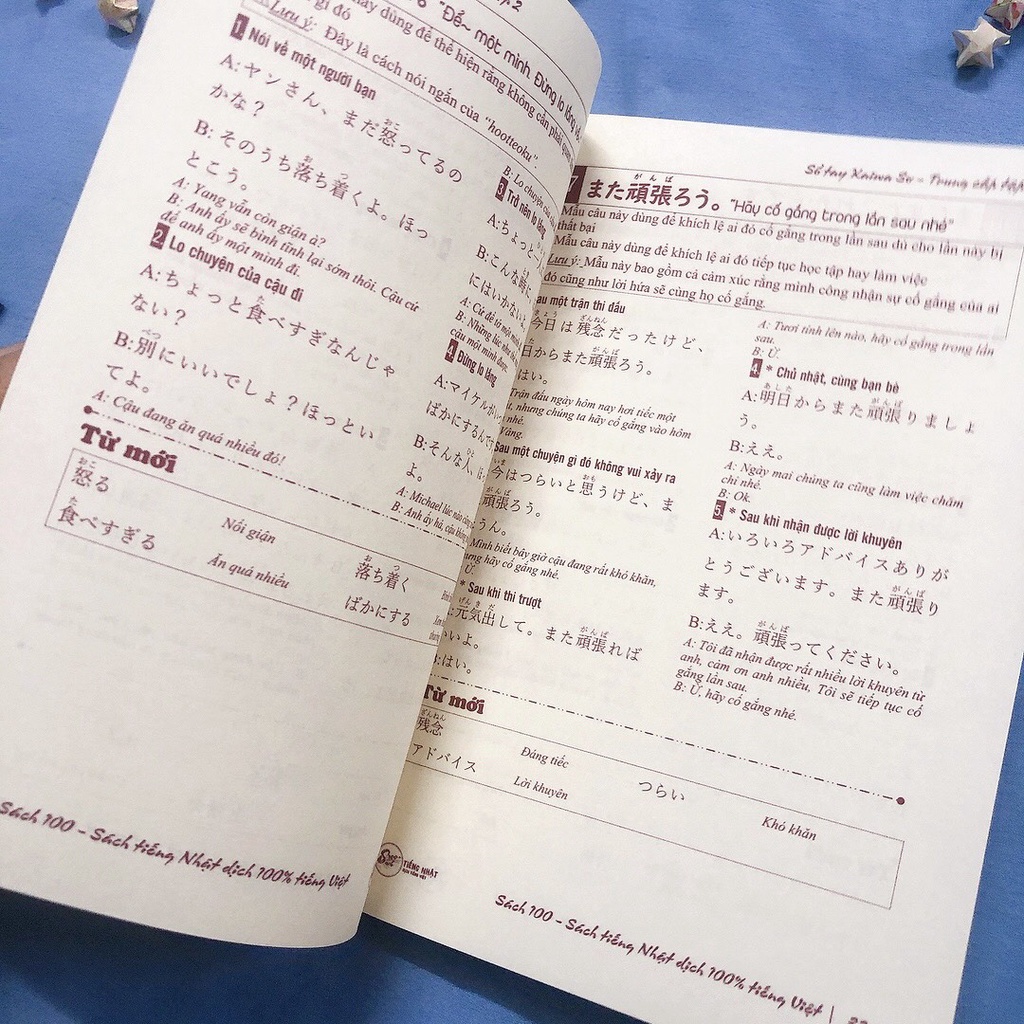 "Để~ một mình. Đừng lo lắng về
gì đó
này dùng để thể hiện rằng không cần phải quan
Lưu ý: Đây là cách nói ngắn của "hootteoku".
1 Nói về một người bạn
A:ヤンさん、まだ怒ってるの
かな?
B: そのうち落ち着くよ。ほっ
とこう。
A: Yang vẫn còn giận à?
B: Anh ấy sẽ bình tĩnh lại sớm thôi. Cậu cứ
để anh ấy một mình đi.
2 Lo chuyện của cậu đi
A:ちょっと食べすぎなんじゃ
ない?
B:別にいいでしょ?ほっとい
てよ。
A: Cậu đang ăn quá nhiều đó!
B: Lo chuyện của
3 Trở nên lo lắng
A:ちょっと
B:こんな時に
にはいかないよ
A: Cứ để tớ một mình
B: Những lúc như thế
cậu một mình được.
4 Đừng lo lắng
A:マイケルが
ばかにするんです
B:そんな人、ほ
よ。
A: Michael lúc nào cũng
B: Anh ấy hả, cậu không
Từ mới
怒る
Nổi giận
落ち着く
食べすぎる
Ăn quá nhiều
ばかにする
Sách 100 - Sách tiếng Nhật dịch 100% tiếng Việt
Sổ tay Kaiwa Sơ - Trung cấp tập
7 また頑張ろう。 "Hãy cố gắng trong lần sau nhé"
Mẫu câu này dùng để khích lệ ai đó cố gắng trong lần sau dù cho lần này bị
thất bại
Mẫu câu này dùng để khích lệ ai đó tiếp tục học tập hay làm việc
Lưu ý: Mẫu này bao gồm cả cảm xúc rằng mình công nhận sự cố gắng của ai
đó cũng như lời hứa sẽ cùng họ cố gắng.
Sau một trận thi đấu
今日は残念だったけど、
日からまた頑張ろう。
はい。
Trận đấu ngày hôm nay hơi tiếc một
, nhưng chúng ta hãy cố gắng vào hôm
nhé.
Vâng.
Sau một chuyện gì đó không vui xảy ra
今はつらいと思うけど、ま
頑張ろう。
うん。
Mình biết bây giờ cậu đang rất khó khăn,
nhưng hãy cố gắng nhé.
Ừ.
* Sau khi thi trượt
元気出して。また頑張れば
いいよ。
B:はい。
A: Tươi tỉnh lên nào, hãy cố gắng trong lần
sau.
B: Ừ.
4. * Chủ nhật, cùng bạn bè
A:明日からまた頑張りましょ
う。
B:ええ。
A: Ngày mai chúng ta cũng làm việc chăm
chỉ nhé.
B: Ok.
5. * Sau khi nhận được lời khuyên
A:いろいろアドバイスありが
とうございます。また頑張り
ます。
B:ええ。頑張ってください。
A: Tôi đã nhận được rất nhiều lời khuyên từ
anh, cảm ơn anh nhiều, Tôi sẽ tiếp tục cố
gắng lần sau.
B: Ừ, hãy cố gắng nhé.
Từ mới
残念
Đáng tiếc
つらい
Khó khăn
アドバイス
Lời khuyên
TIẾNG NHẬT
Sách 100 - Sách tiếng Nhật dịch 100% tiếng Việt |